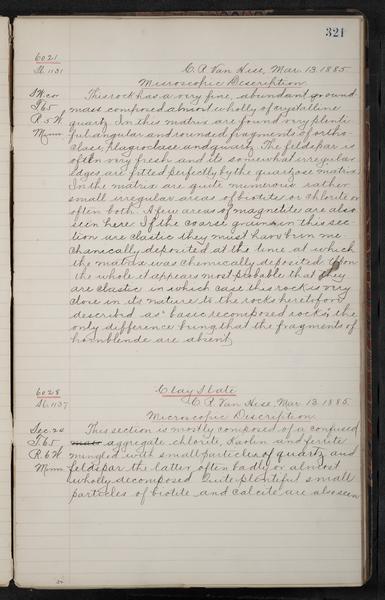 321
6021
Sl. 1131
C. R. Van Hise, Mar. 13. 1885.
Microscopic Description.
T. 65
R. 5 W
Minn.
This rock has a very fine, abundant ground
mass composed almost wholly of crystalline
quartz. In this matrix are found very plenti-
ful angular and rounded fragments of ortho-
clase, plagioclase and quartz. The feldspar is
often very fresh and its somewhat irregular
edges are fitted perfectly by the quartzose matrix.
In the matrix are quite numerous rather
small irregular areas of biotite or chlorite or
often both. A few areas of magnetite are also
seen here. If the coarse grains in this sec-
tion are clastic they must have been me-
chanically deposited at the time at which
the matrix was chemically deposited. Upon
the whole it appears most probable that they
are clastic in which case this rock is very
close in its nature to the rocks heretofore
described as "basic recomposed rocks", the
only difference being that the fragments of
hornblende are absent.
6028
Sl. 1137
Clay Slate
C. R. Van Hise, Mar. 13. 1885.
Microscopic Description.
Sec. 24
T. 65
R. 6 W
Minn.
This section is mostly composed of a confused
mass aggregate chlorite, kaolin and ferrite
mingled with small particles of quartz and
feldspar the latter often badly or almost
wholly decomposed. Quite plentiful small
particles of biotite and calcite are also seen